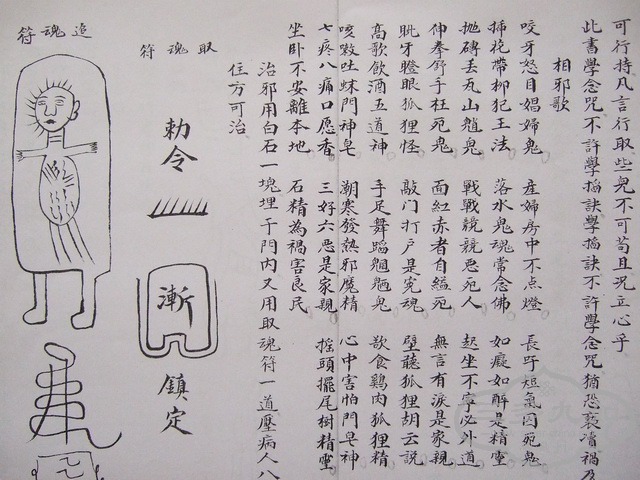 可行持凡言行取些鬼不可苟且况立心乎
此書學念咒不許學搯訣學搯訣不許學念咒猶恐褻凟禍乃
相邪歌
咬牙怒目娼婦鬼 產婦房中不点燈 長吁短氣囚死鬼
披枷帶柳犯王法 落水鬼魂常念佛 如癡如醉是精靈
拋磚丢瓦山魈鬼 戰戰競競惡死人 起坐不寧必外道
伸拳舒手枉死鬼 面紅赤者自縊死 無言有淚是家親
毗牙瞪眼狐狸怪 敲门打户是寃魂 壁聽狐狸胡云説
高歌飲酒五道神 手足舞蹈魍魎鬼 欲食鷄肉狐狸精
咳嗽吐蛛門神皂 潮寒發熱邪魔精 心中害怕門皂神
七疼八痛口愿香 三好六惡是家親 摇頭擺尾樹精靈
坐卧不安離本地 石精為禍害良民
治邪用白石一塊埋于門内又用取魂符一道壓病人八
住方可治
取魂符
勅令
漸
鎮定
追魂符